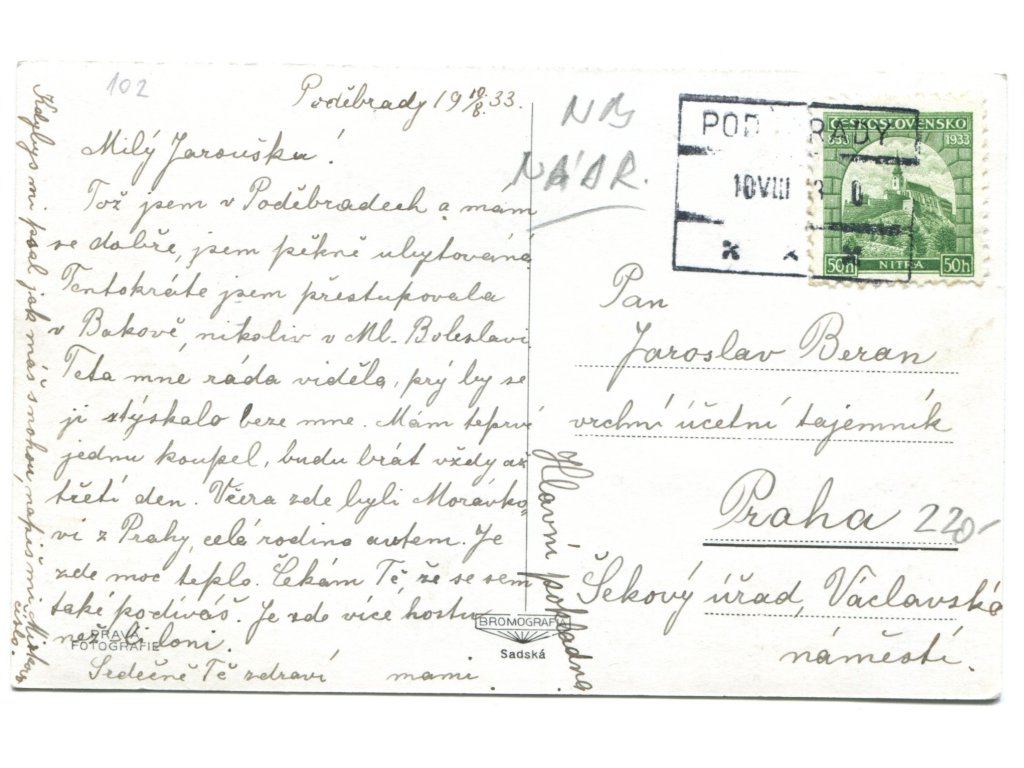 102
Poděbrady 19 10/8 33.
Milý Jaroušku!
Tož jsem v Poděbradech a mám
se dobře, jsem pěkně ubytována
Tentokráte jsem přestupovala
v Bakově, nikoliv v Ml. Boleslavi
Teta mne ráda viděla, prý by se
jí stýskalo beze mne. Mám teprve
jednu koupel, budu brát vždy až
třetí den. Včera zde byli Morávko-
vi z Prahy, celá rodina autem. Je
zde moc teplo. Čekám Tě že se sem
také podíváš. Je zde více hostu
než loni.
Srdečně Tě zdraví mami.
Kdybys mi psal jak máš s nohou, napiš mi
číslo.
PRAVÁ
FOTOGRAFIE
BROMOGRAFIA
Sadská
NB
NÁDR.
POD RADY
10 VIII 3 0
ČESKOSLOVENSKO
833 1933
NITRA
50h 50h
Pan
Jaroslav Beran
vrchní účetní tajemník
Praha
220-
Šekový úřad, Václavská
náměstí.
Hlavní pokladna